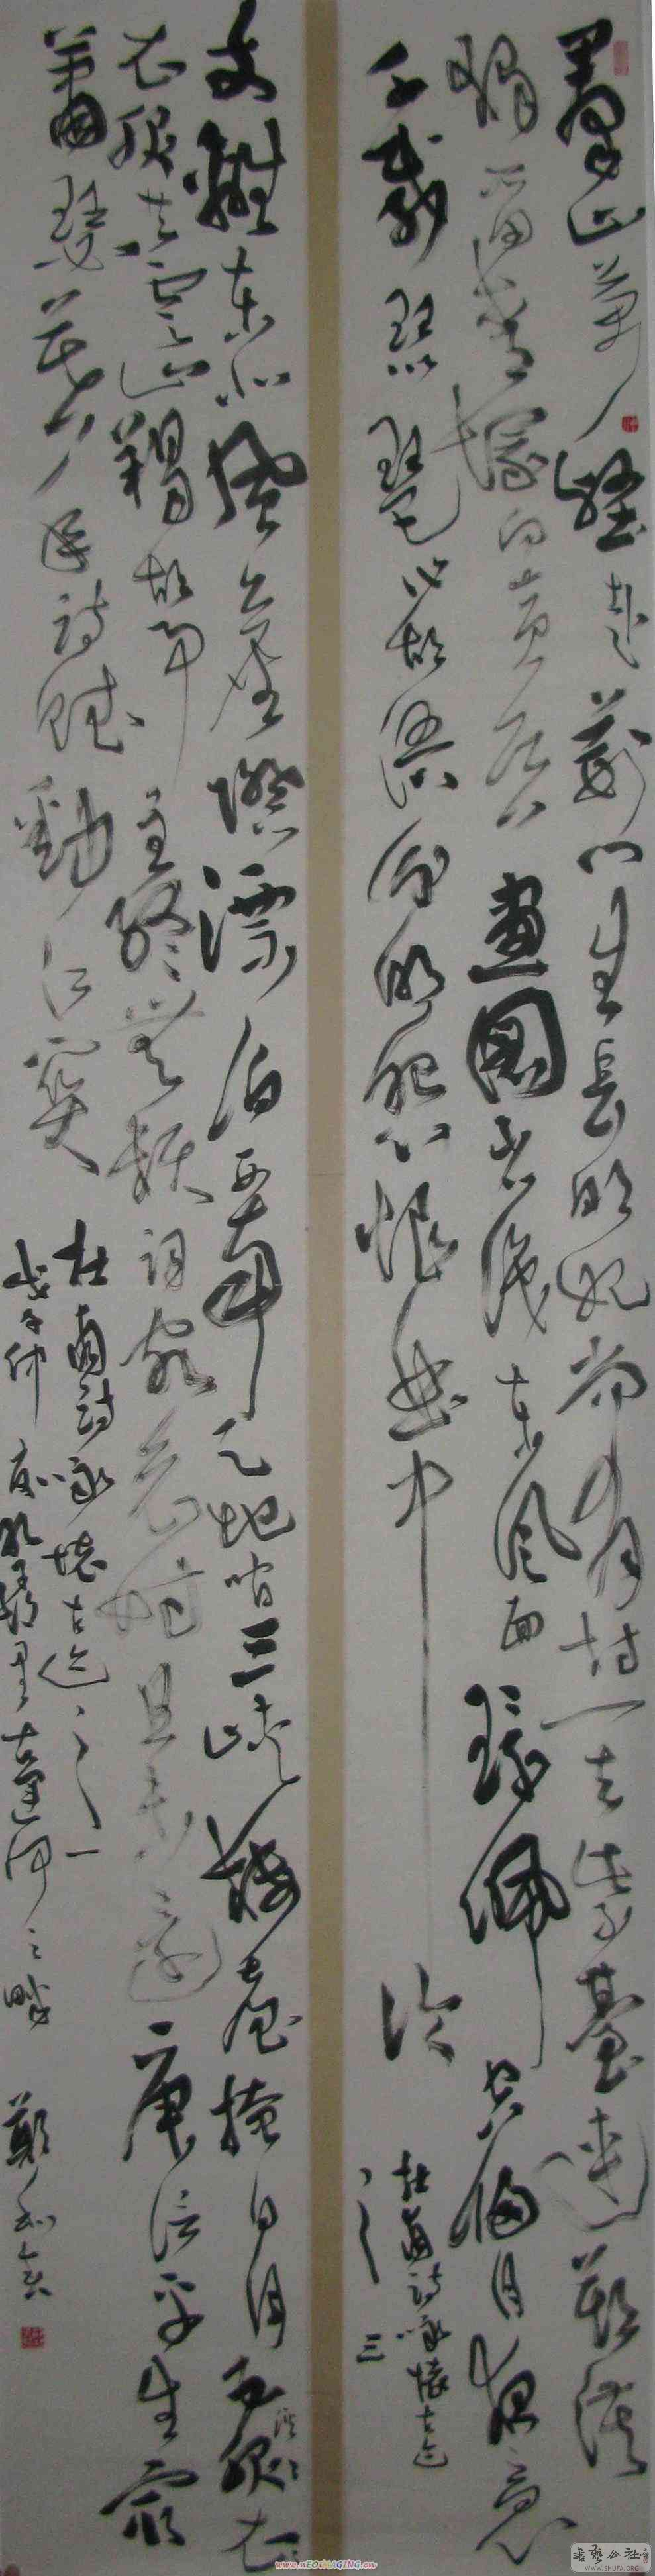 羣山萬壑赴荊門生長明妃尚有村一去紫臺連朔漠
獨留青塚向黃昏畫圖省識春風面環佩空歸月夜魂
千載琵琶作胡語分明怨恨曲中論
杜甫詩詠懷古迹
之三
支離東北風塵際漂泊西南天地間三峽樓臺淹日月五溪
衣服共雲山羯胡事主終無賴詞客哀時且未還庾信平生最
蕭瑟暮年詩賦動江關
杜甫詩詠懷古迹之一
戊子仲夏於古運河之畔 鄭
www.nEOIMAGING.cn
書藝公社
WWW.SHUFA.ORG